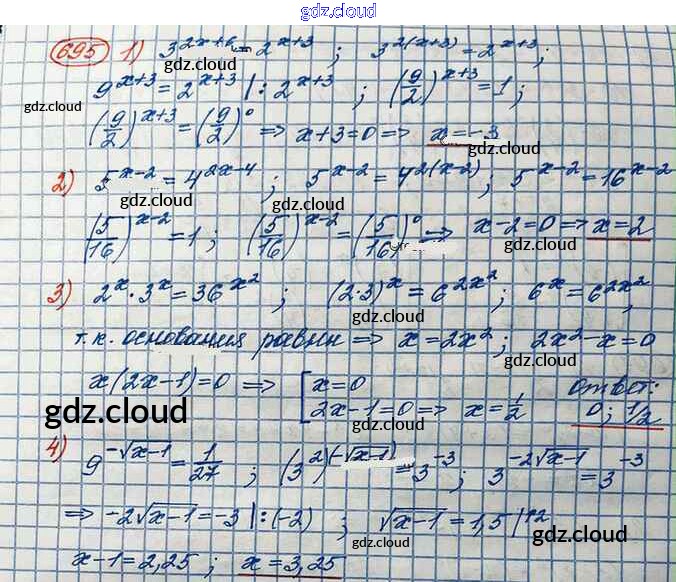 gdz.cloud
695 1) 3^{2x+6} = 2^{x+3} ; 3^{2(x+3)} = 2^{x+3} ;
gdz.cloud
9^{x+3} = 2^{x+3} | : 2^{x+3} ; (9/2)^{x+3} = 1 ;
gdz.cloud gdz.cloud
(9/2)^{x+3} = (9/2)^0 => x+3=0 => x=-3
gdz.cloud gdz.cloud
2) 5^{x-2} = 4^{2x-4} ; 5^{x-2} = 4^{2(x-2)} ; 5^{x-2} = 16^{x-2}
gdz.cloud
(5/16)^{x-2} = 1 ; (5/16)^{x-2} = (5/16)^0 => x-2=0 => x=2
gdz.cloud gdz.cloud
3) 2^x · 3^x = 36^{x^2} ; (2·3)^x = 6^{2x^2} ; 6^x = 6^{2x^2}
gdz.cloud
т.к. основания равны => x = 2x^2 ; 2x^2 - x = 0
gdz.cloud gdz.cloud
x(2x-1)=0 => [ x=0 Ответ:
2x-1=0 => x=1/2 0; 1/2
gdz.cloud gdz.cloud
4) 9^{-√x-1} = 1/27 ; (3^2)^{(-√x-1)} = 3^{-3} ; 3^{-2√x-1} = 3^{-3}
gdz.cloud gdz.cloud
=> -2√x-1 = -3 | : (-2) ; √x-1 = 1,5 |↑2
gdz.cloud
x-1 = 2,25 ; x = 3,25
gdz.cloud gdz.cloud